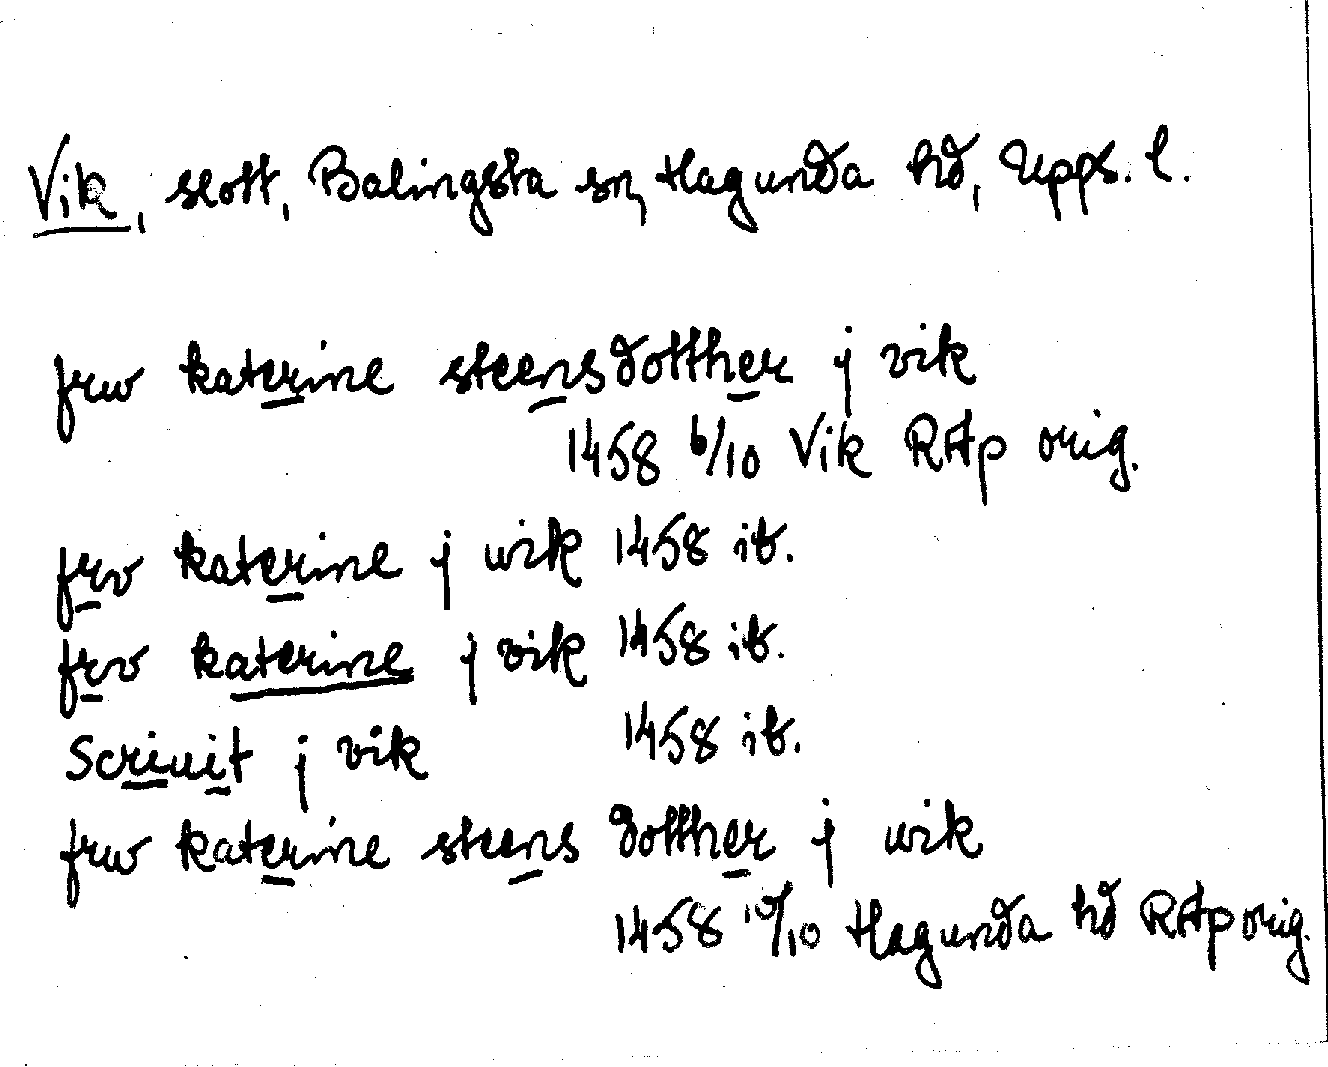 Vik, slott, Balingsta sn, Hagunda hd, Upps. l.
frw katerine steensdotther j vik
1458 6/10 Vik RAp orig.
frv katerine j wik 1458 ib.
frv katerine j vik 1458 ib.
Scriuit j vik 1458 ib.
frw katerine steens dotther j wik
1458 10/10 Hagunda hd RAp orig.